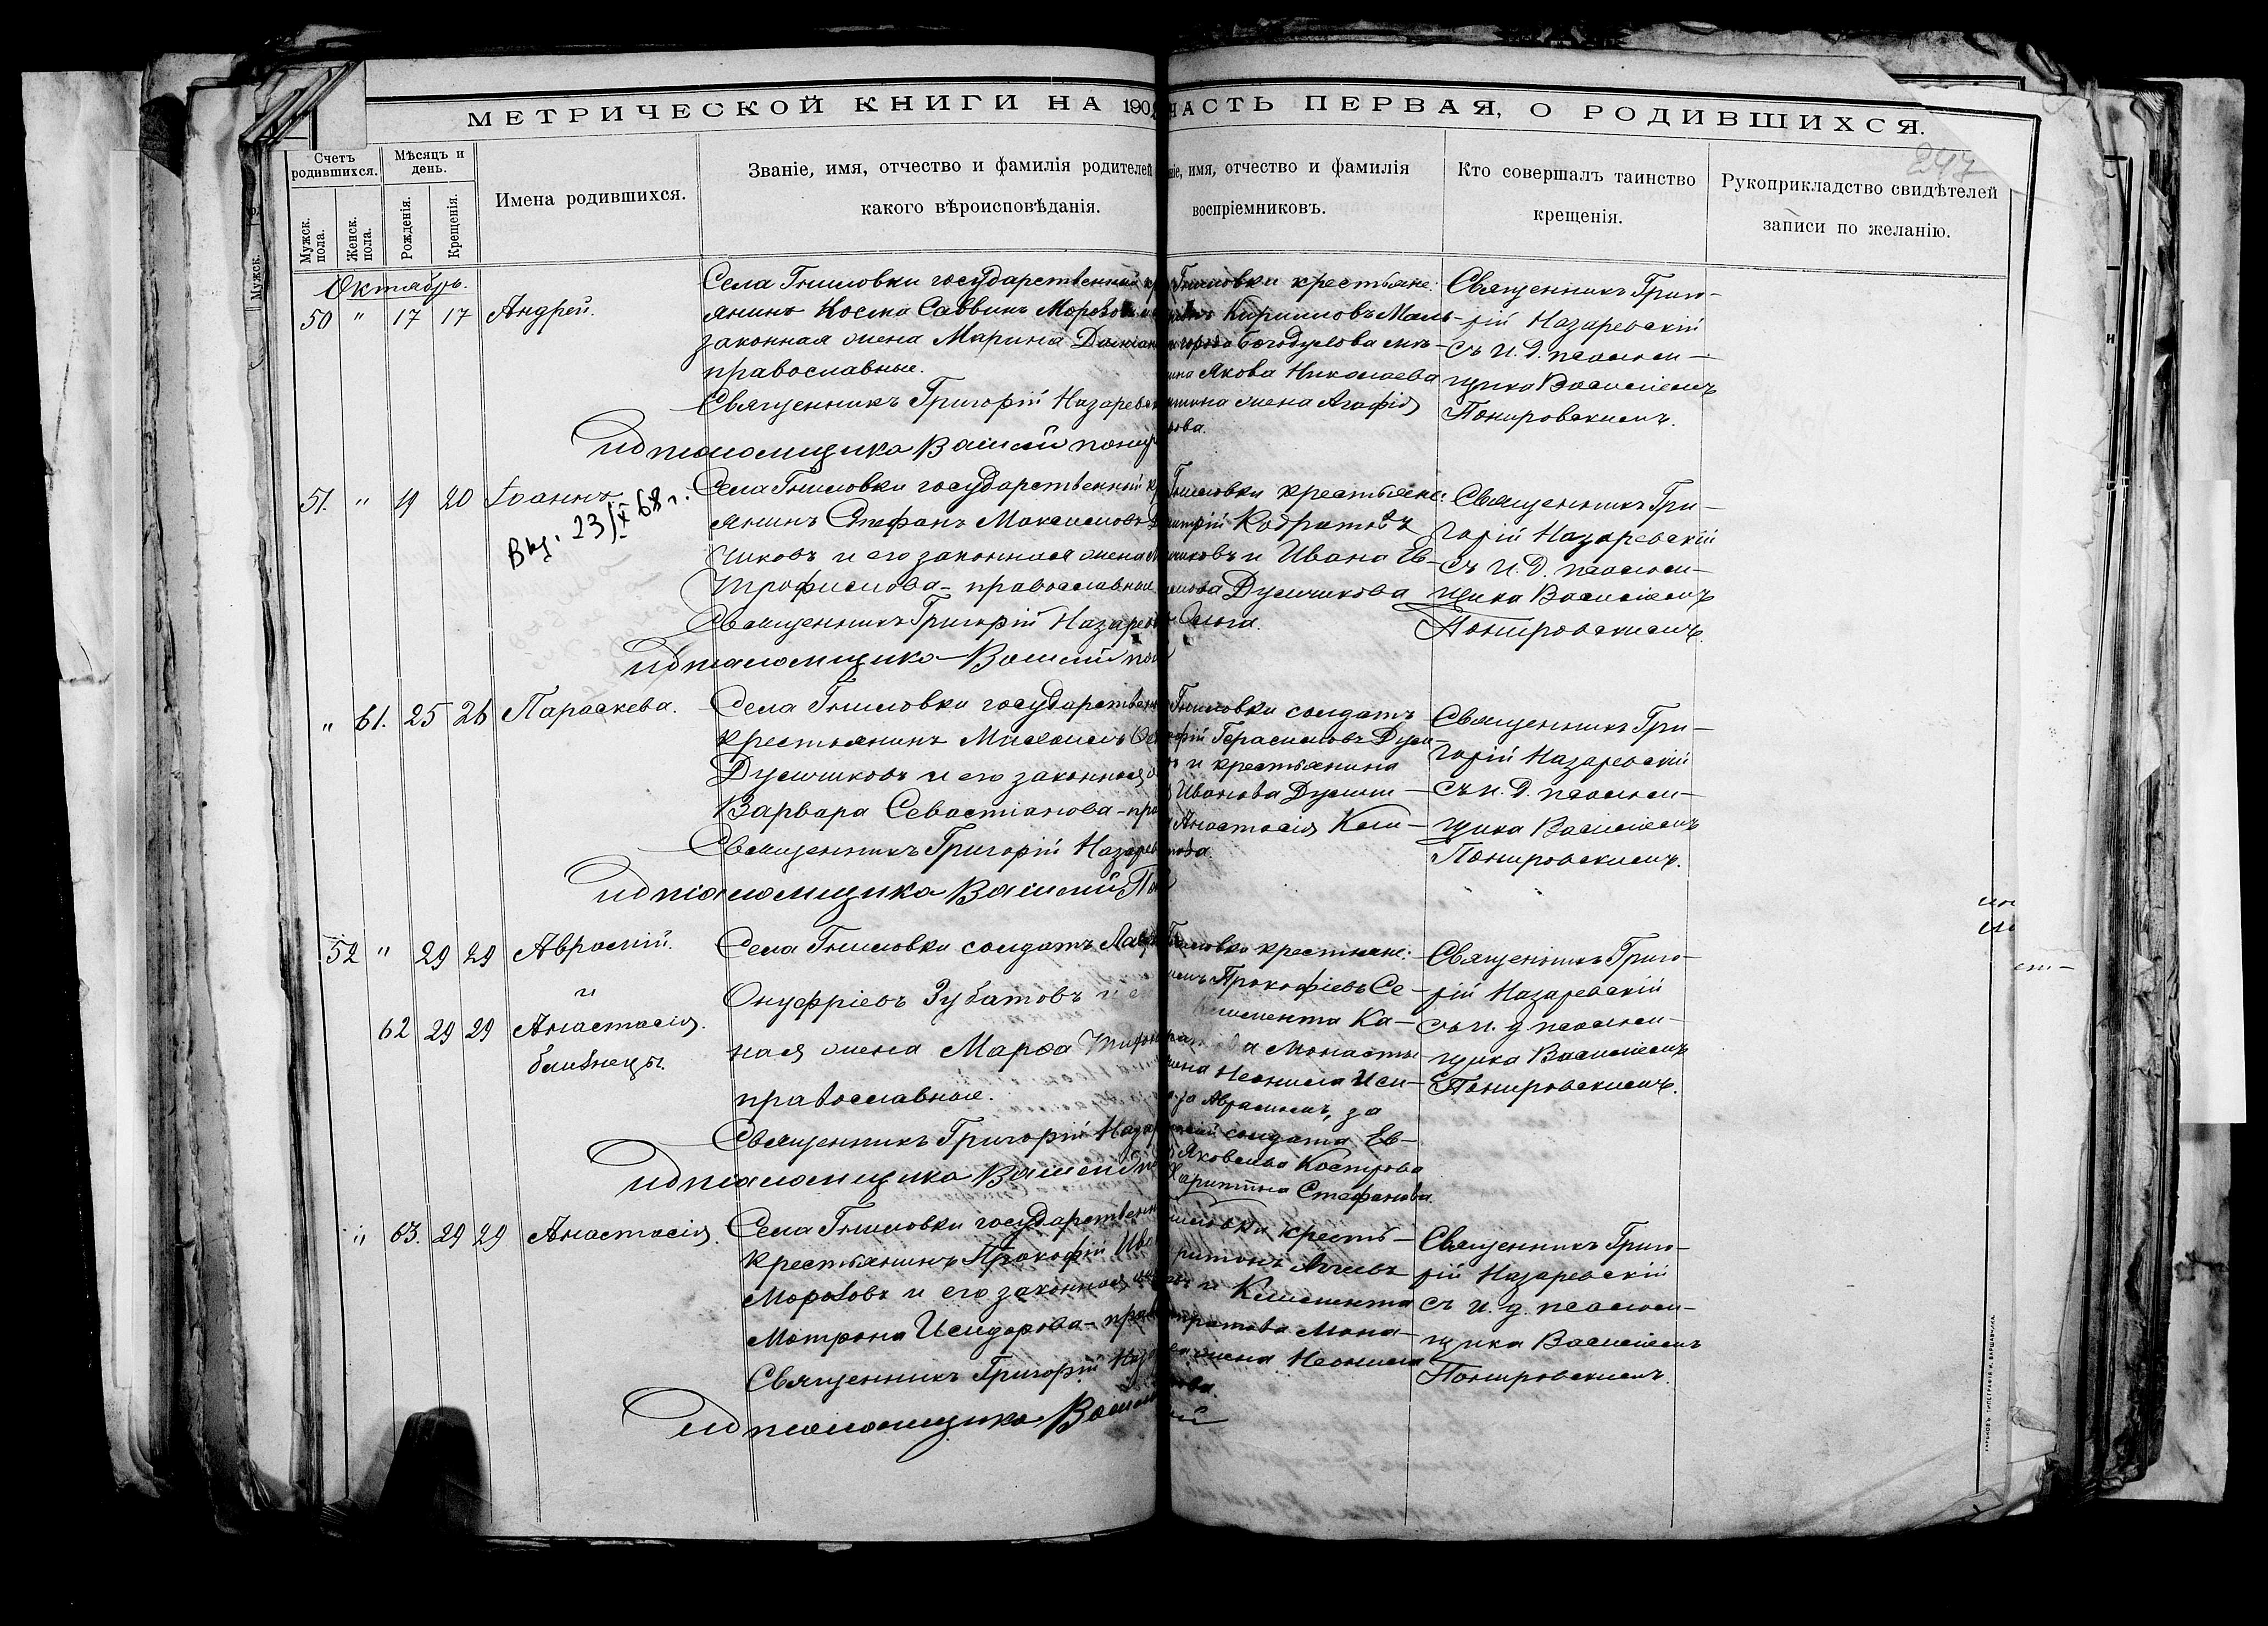 МЕТРИЧЕСКОЙ КНИГИ НА 190
ЧАСТЬ ПЕРВАЯ, О РОДИВШИХСЯ.
247
Счетъ родившихся.
Мужск. пола.
Женск. пола.
Мѣсяцъ и день.
Рожденія.
Крещенія.
Имена родившихся.
Званіе, имя, отчество и фамилія родителей
какого вѣроисповѣданія.
ніе, имя, отчество и фамилія
воспріемниковъ.
Кто совершалъ таинство
крещенія.
Рукоприкладство свидѣтелей
записи по желанію.
Октябрь.
50 " 17 17 Андрей.
Села Гниловки государственный кр
янинъ Косма Саввинъ Морозовъ и
законная жена Марина
православные.
Священникъ Григорій Назаревск
ид псаломщика Василій Пониро
Гниловки крестьяне:
Кирилловъ Маль-
города Богодухова мѣ-
Якова Николаева
жена Агафія
рова.
Священникъ Григо-
рій Назаревскій
съ И. Д. псалом-
щика Василіемъ
Понировскимъ.
51. " 19 20 Іоаннъ
Выд. 23/X 68 г.
Села Гниловки государственный кр
янинъ Стефанъ Максимовъ
чиковъ и его законная жена
Трофимова - православные
Священникъ Григорій Назарев
ид псаломщика Василій Пон
Гниловки крестьяне:
Кодратовъ
чиковъ и Ивана Ев-
мова Думчикова
Анна.
Священникъ Гри-
горій Назаревскій
съ И. Д. псалом-
щика Василіемъ
Понировскимъ.
" 61. 25 26 Параскева.
Села Гниловки государствен
крестьянинъ Михаилъ
Думчиковъ и его законная
Варвара Севастіанова - пра
Священникъ Григорій Назарев
ид псаломщика Василій По
Гниловки солдатъ
Герасимовъ Дум-
и крестьянина
Иванова Думчи-
Анастасія Кли-
нова.
Священникъ Гри-
горій Назаревскій
съ и. д. псалом-
щика Василіемъ
Понировскимъ.
52 " 29 29 Аврамій.
и
62 29 29 Анастасія.
близнецы.
Села Гниловки солдатъ
Онуфріевъ Зубатовъ и е
ная жена Марѳа
православные.
Священникъ Григорій Назар
ид псаломщика Василій
Гниловки крестьяне:
Прокофіевъ Се-
Климента Ка-
а Монасты-
Неонила Иси-
за Аврамія, за
солдата Ев-
Яковлева Кострова
Харитина Стефанова.
Священникъ Григо-
рій Назаревскій
съ и. д. псалом-
щика Василіемъ
Понировскимъ.
" 63. 29 29 Анастасія.
Села Гниловки государствен
крестьянинъ Прокофій Ива
Морозовъ и его законная
Мотрона Исидорова - прав
Священникъ Григорій Наз
ид псаломщика Васил
кресть-
и Климента
Мона-
жена Неонила
Священникъ Григо-
рій Назаревскій
съ и. д. псалом-
щика Василіемъ
Понировскимъ.